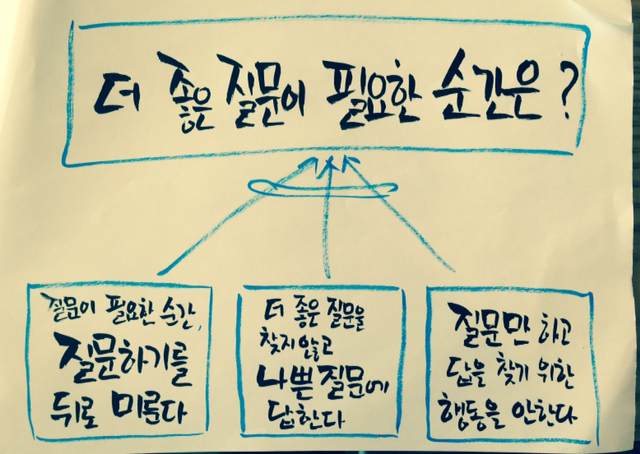 더 좋은 질문이 필요한 순간은?
질문이 필요한 순간,
질문하기를
뒤로 미룬다
더 좋은 질문을
찾지않고
나쁜 질문에
답한다
질문만 하고
답을 찾기 위한
행동을 안한다